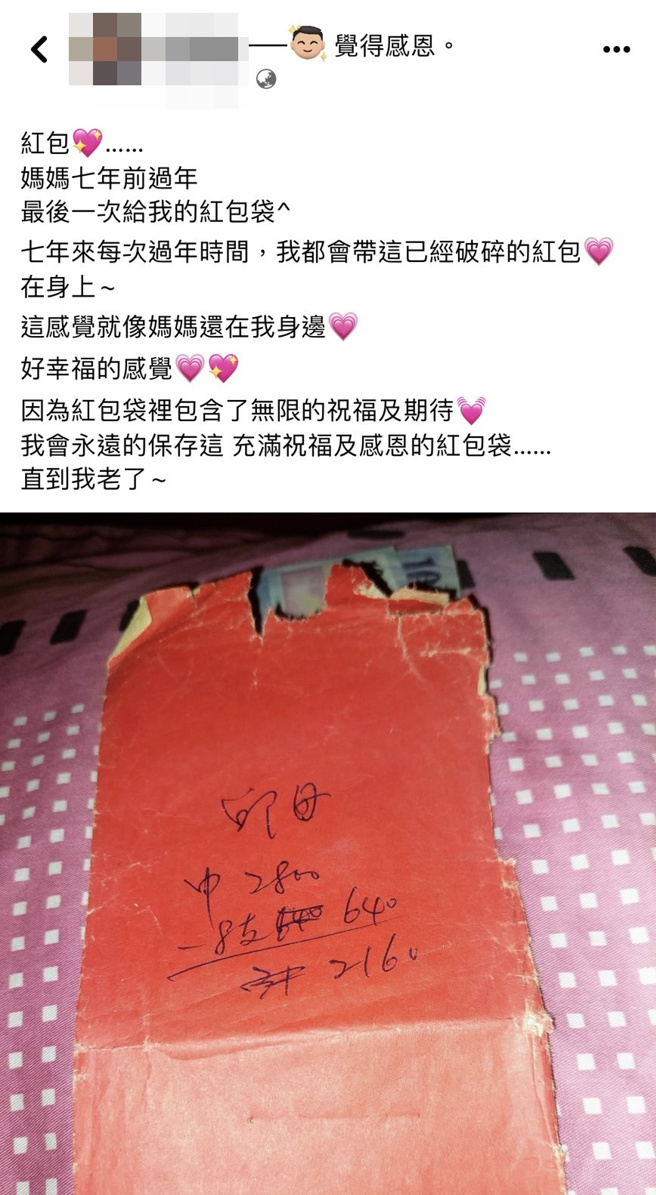 覺得感恩。
紅包💖……
媽媽七年前過年
最後一次給我的紅包袋^
七年來每次過年時間，我都會帶這已經破碎的紅包💗
在身上~
這感覺就像媽媽還在我身邊💗
好幸福的感覺💗💖
因為紅包袋裡包含了無限的祝福及期待💓
我會永遠的保存這 充滿祝福及感恩的紅包袋……
直到我老了~
邱母
中 2800
-8支 640
2160